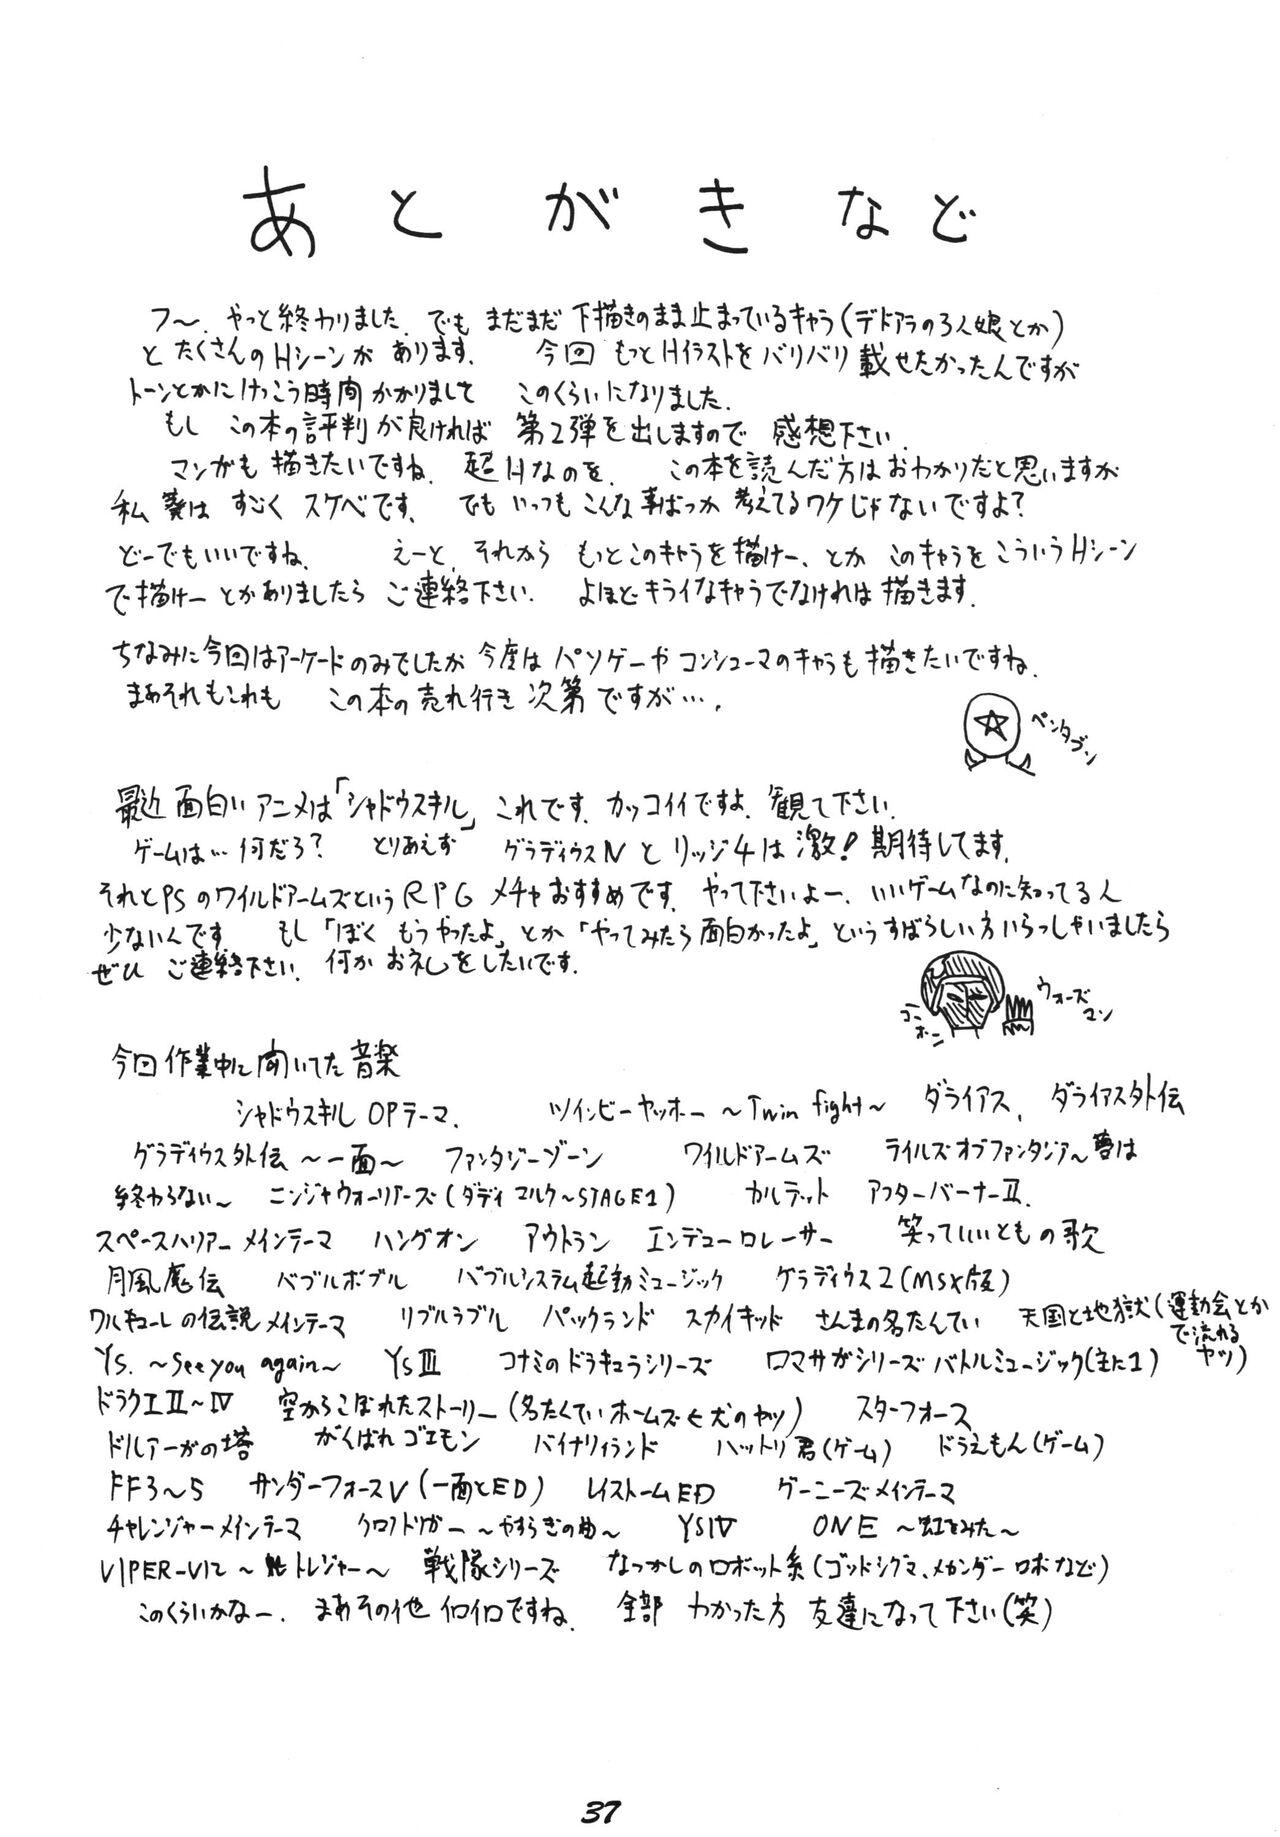 あとがきなど
フ〜、やっと終わりました。でも まだまだ 下描きのまま止まっているキャラ(デドアラの3人娘とか)
と たくさんのHシーンが あります。 今回 もっとHイラストを バリバリ 載せたかったんですが
トーンとかに けっこう時間 かかりまして このくらいになりました。
もし この本の評判が良ければ 第2弾を出しますので 感想下さい。
マンガも 描きたいですね。 超Hなのを。 この本を読んだ方は おわかりだと思いますが
私 葵は すごく スケベです。 でも いっつも こんな事ばっか 考えてるワケじゃないですよ?
どーでもいいですね。 えーと、それから もっとこのキャラを描けー、とか このキャラを こういうHシーン
で描けー とかありましたら ご連絡下さい。 よほど キライなキャラでなければ 描きます。
ちなみに今回はアーケードのみでしたが 今度は パソゲーや コンシューマのキャラも 描きたいですね。
まあそれもこれも この本の売れ行き 次第ですが…。
ペンタゴン
最近 面白い アニメは「シャドウスキル」 これです。カッコイイですよ。観て下さい。
ゲームは… 何だろ? とりあえず グラディウスⅣ と リッジ4は 激! 期待してます。
それとPSのワイルドアームズというRPG メチャおすすめです。やって下さいよー。いいゲームなのに知ってる人
少ないんです。 もし「ぼく もうやったよ」とか「やってみたら 面白かったよ」という すばらしい方いらっしゃいましたら
ぜひ ご連絡下さい。何か お礼をしたいです。
コーホー
ウォーズマン
今回 作業中に聞いてた 音楽
シャドウスキル OPテーマ、 ツインビーヤッホー 〜Twin fight〜 ダライアス、 ダライアス外伝
グラディウス外伝 〜一面〜 ファンタジーゾーン ワイルドアームズ テイルズオブファンタジア〜夢は
終わらない〜 ニンジャウォーリアーズ(ダディ マルク〜STAGE1) カルテット アフターバーナーⅡ
スペースハリアー メインテーマ ハングオン アウトラン エンデューロレーサー 笑っていいともの歌
月風魔伝 バブルボブル バブルシステム起動ミュージック グラディウス2(MSX版)
ワルキューレの伝説 メインテーマ リブルラブル パックランド スカイキッド さんまの名たんてい 天国と地獄(運動会とか
で流れる
ヤツ)
YS.〜See you again〜 YSⅢ コナミのドラキュラシリーズ ロマサガシリーズ バトルミュージック(主に1)
ドラクエⅡ〜Ⅳ 空からこぼれたストーリー(名たんていホームズ 犬のヤツ) スターフォース
ドルアーガの塔 がんばれ ゴエモン バイナリィランド ハットリ君(ゲーム) ドラえもん(ゲーム)
FF3〜5 サンダーフォースⅤ(一面とED) レイストームED グーニーズメインテーマ
チャレンジャーメインテーマ クロノトリガー 〜やすらぎの曲〜 YSⅣ ONE 〜虹をみた〜
VIPER-V12 〜トレジャー〜 戦隊シリーズ なつかしのロボット系(ゴッドシグマ、メカンダーロボなど)
このくらいかなー。 まあその他 イロイロですね。 全部 わかった方 友達になって下さい(笑)
37